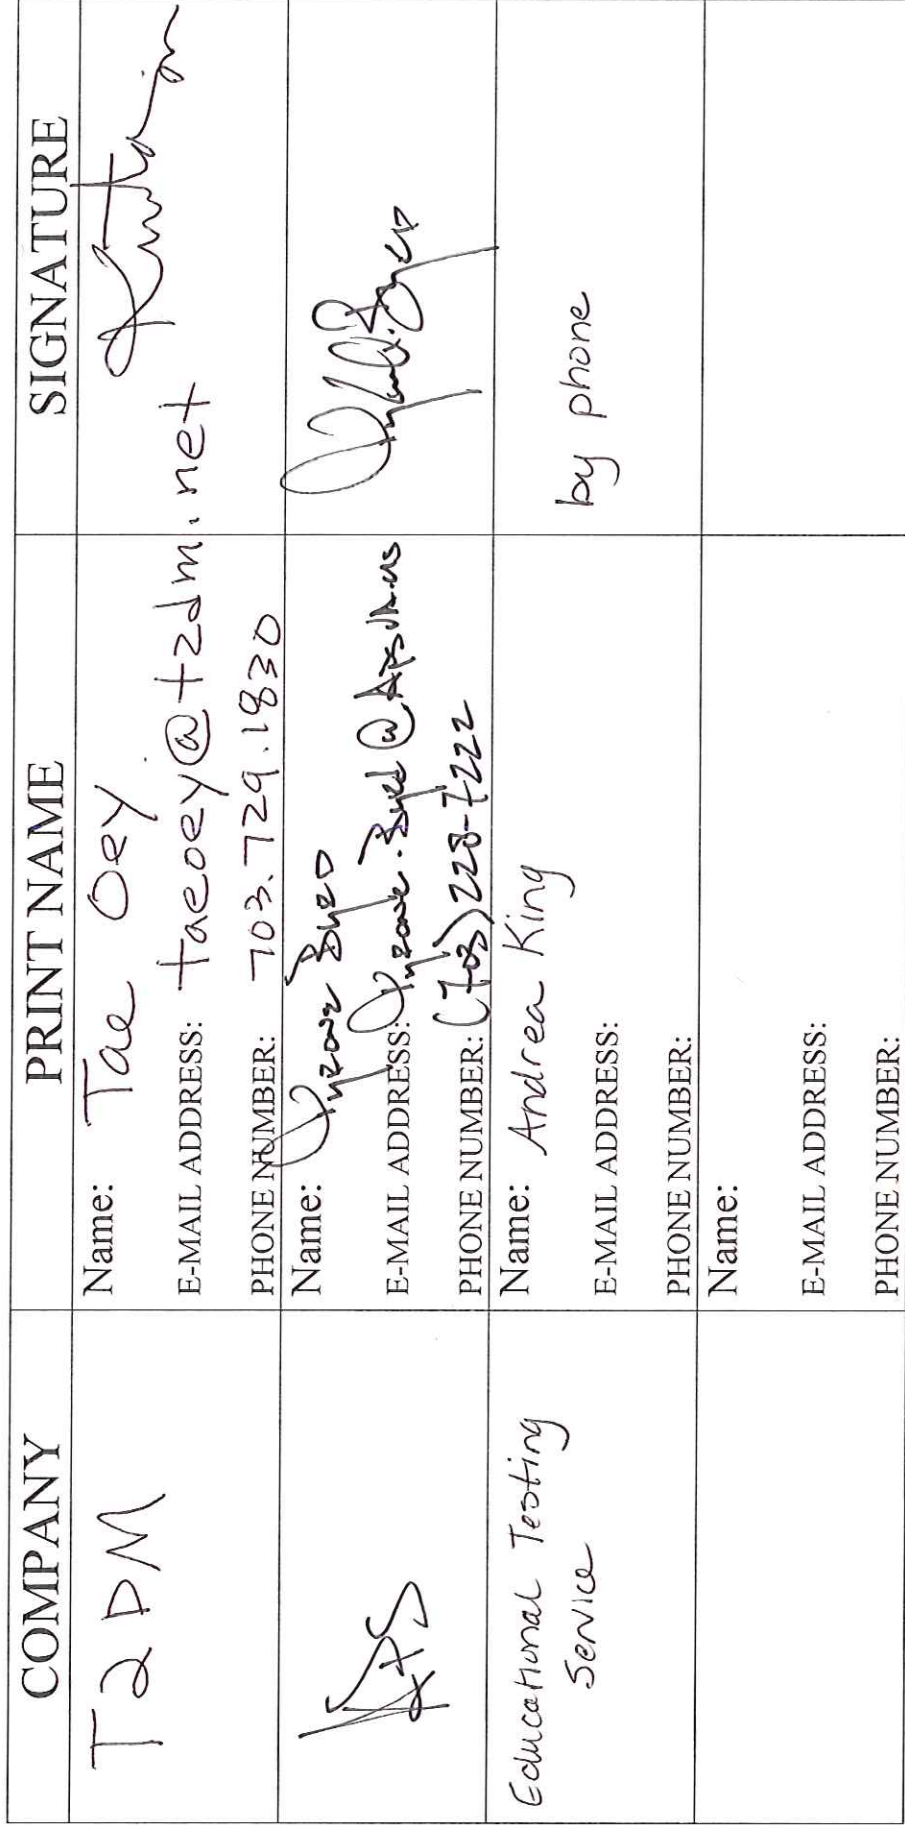 COMPANY PRINT NAME SIGNATURE
T2DM
Name: Tae Oey
E-MAIL ADDRESS: taeoey@t2dm.net
PHONE NUMBER: 703.729.1830
APS
Name: Byrd
E-MAIL ADDRESS:
PHONE NUMBER: (703) 228-7222
Educational Testing
Service
Name: Andrea King
by phone
E-MAIL ADDRESS:
PHONE NUMBER:
Name:
E-MAIL ADDRESS:
PHONE NUMBER: